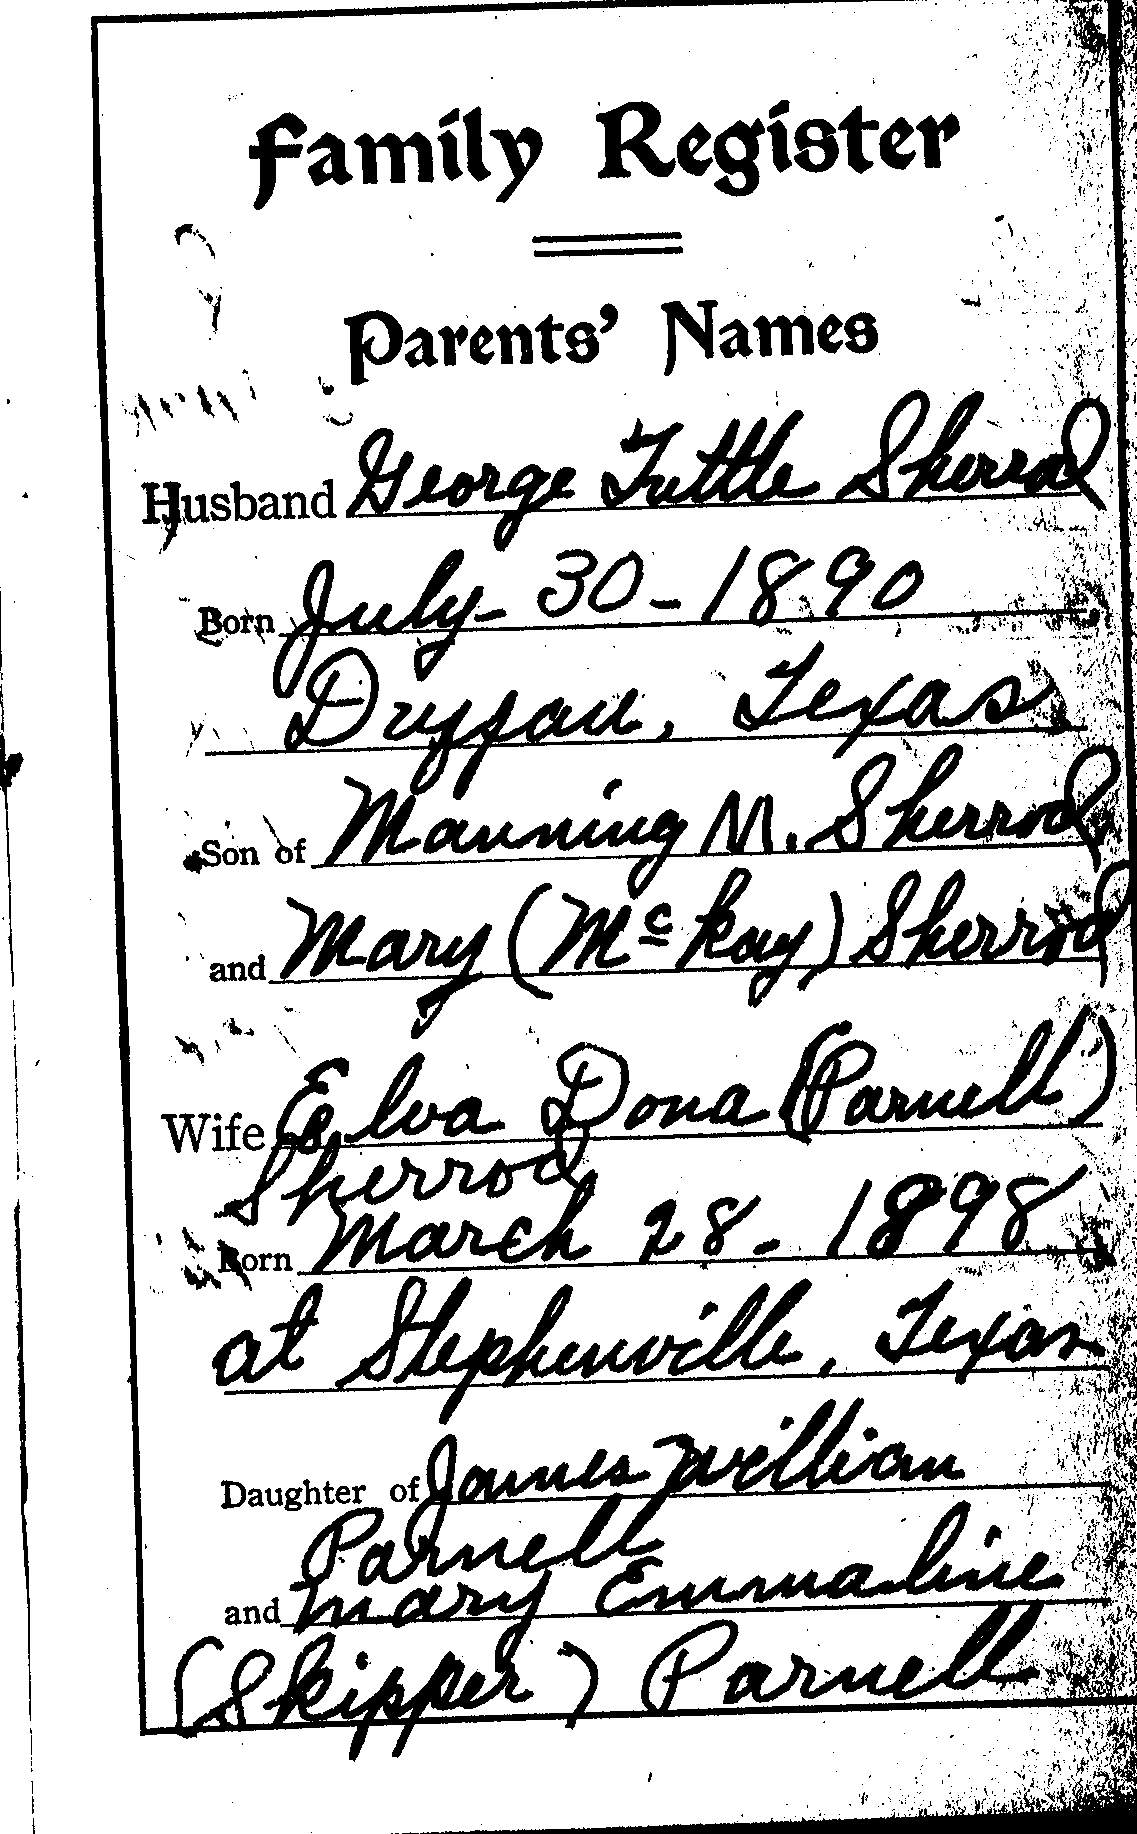 Family Register
Parents' Names
Husband George Tuttle Sherrod
Born July - 30 - 1890
Texas
Son of Manning M. Sherrod
and Mary (Mc Kay) Sherrod
Wife Elva Dona (Parnell)
Sherrod
Born March 28 - 1898
at Stephenville, Texas
Daughter of James William
Parnell
and Mary Emmaline
(Skipper) Parnell